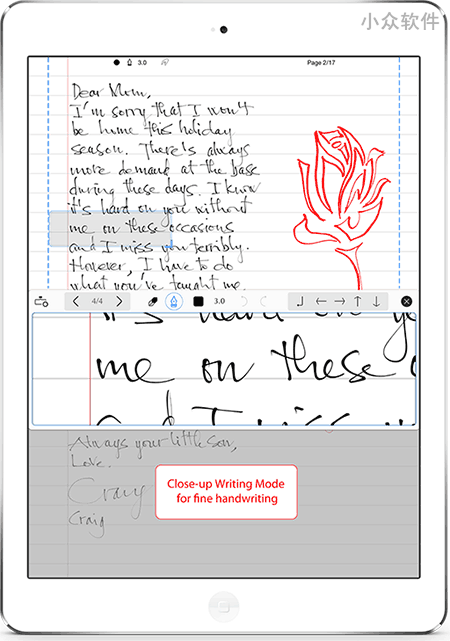 小众软件
3.0
Page 2/17
Dear Mom,
I'm sorry that I won't
be home this holiday
season. There's always
more demand at the base
during these days. I know
it's hard on you without
me on these occasions
and I miss you terribly.
However, I have to do
what you've taught me.
4/4
3.0
it's hard on yo
me on these o
and I miss you
Always your little son,
Love.
Craig
Craig
Close-up Writing Mode
for fine handwriting